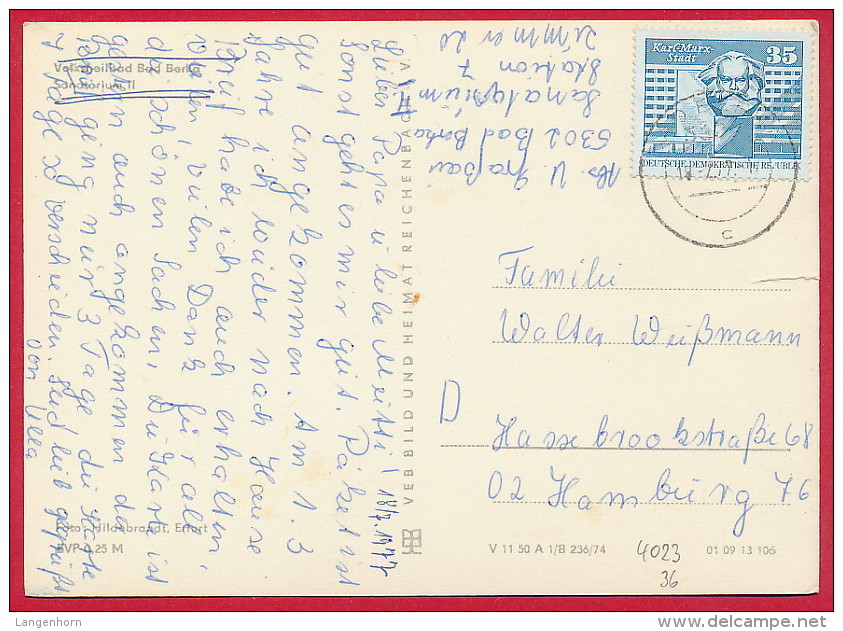 Volksheilbad Bad Berka
Sanatorium II
Foto: Hildebrandt, Erfurt
EVP 0,25 M
VEB BILD UND HEIMAT REICHENBACH
V 11 50 A 1/B 236/74
01 09 13 106
4023
36
Karl-Marx-
Stadt
35
DEUTSCHE DEMOKRATISCHE REPUBLIK
c
Abs. U.
5302 Bad Berka
Sanatorium II
Station 7
Zimmer 20
18/2.1977
Lieber Papa u liebe Mutti!
Sonst geht es mir gut. Paket ist
gut angekommen. Am 1.3
fahre ich wieder nach Hause
Brief habe ich auch erhalten
vielen Dank für all
die schönen Sachen, Die Karte ist
gestern auch angekommen de
ging nur 3 Tage die Karte
y Tage so verschieden. Seid lieb gegrüßt
von Ulla
Familie
Walter Weißmann
D
Hassebrookstraße 68
02 Hamburg 76
Langenhorn
www.delcampe.net